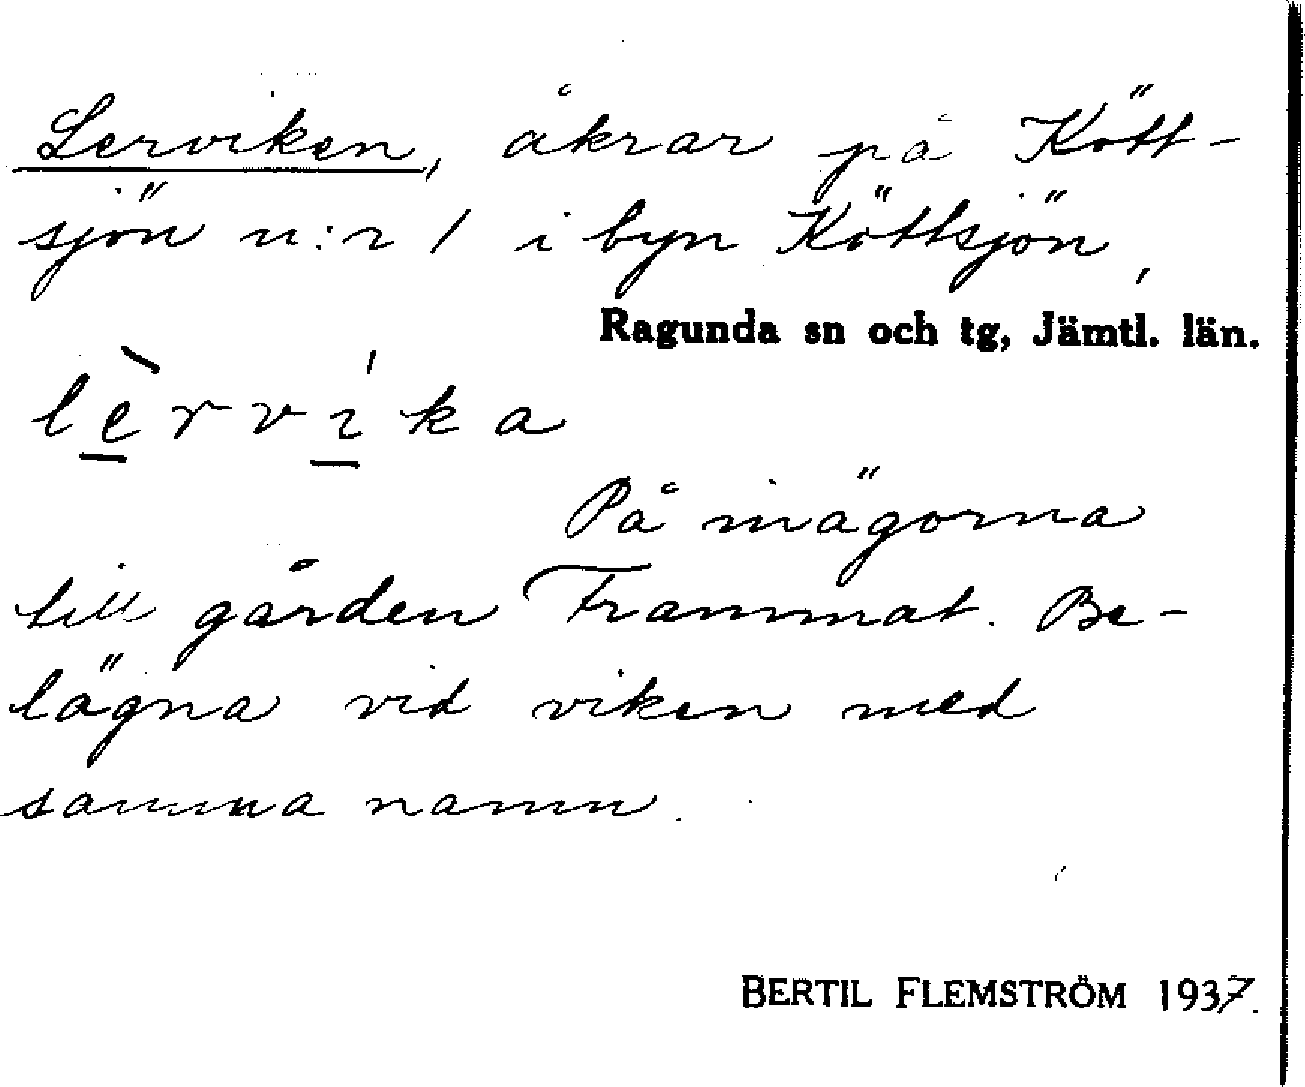 Lerviken, åkrar på Kött-
sjön n:r 1 i byn Köttsjön,
Ragunda sn och tg, Jämtl. län.
lè̠rví̠ka
På inägorna
till gården Frammat. Be-
lägna vid viken med
samma namn.
BERTIL FLEMSTRÖM 1937.